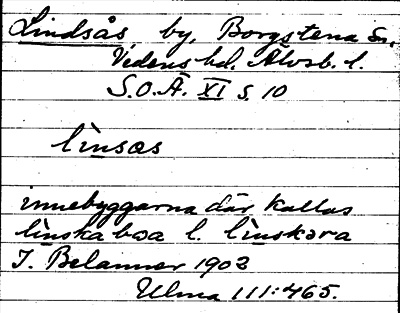 Lindsås by, Borgstena sn.
Vedens hd. Älvsb. l.
S.O.Ä. XI s. 10
lìnsas
innebyggarna där kallas
lìnskaboa l. lìnskəra
J. Belanner 1902
Ulma 111:465.